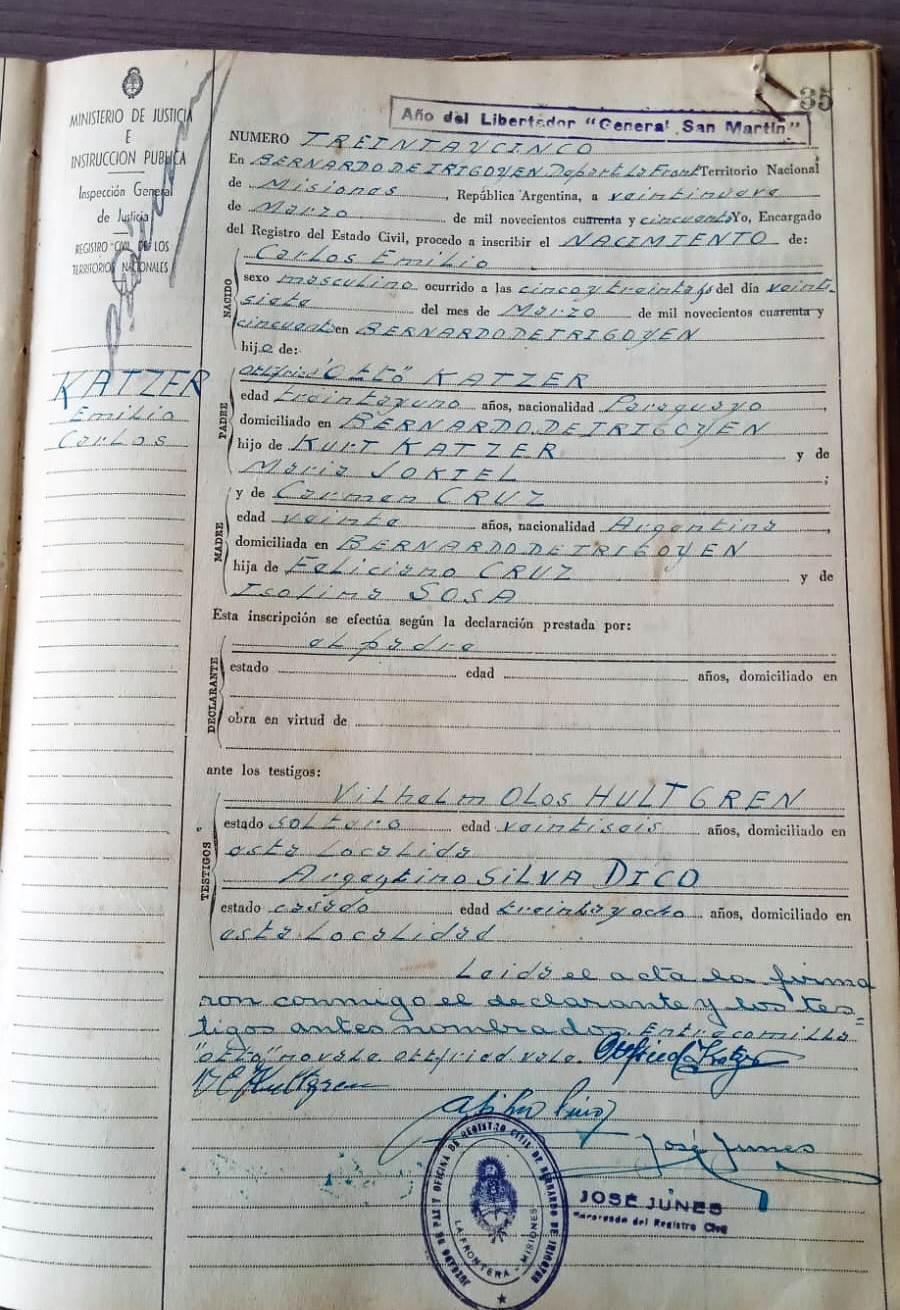 35
MINISTERIO DE JUSTICIA
E
INSTRUCCION PUBLICA
Inspección General
de Justicia
REGISTRO CIVIL DE LOS
TERRITORIOS NACIONALES
KATZER
Emilio
Carlos
Año del Libertador "General San Martín"
NUMERO TREINTAYCINCO
En BERNARDO DE IRIGOYEN Depart La Front Territorio Nacional
de Misiones, República Argentina, a veintinueve
de Marzo de mil novecientos cuarenta y cincuenta Yo, Encargado
del Registro del Estado Civil, procedo a inscribir el NACIMIENTO de:
NACIDO
Carlos Emilio
sexo masculino ocurrido a las cinco y treinta hs del día veinti-
siete del mes de Marzo de mil novecientos cuarenta y
cincuenta en BERNARDO DE IRIGOYEN
hijo de:
PADRE
Ottfried "Otto" KATZER
edad treintayuno años, nacionalidad Paraguayo,
domiciliado en BERNARDO DE IRIGOYEN
hijo de KURT KATZER y de
Maria JOKIEL;
MADRE
y de Carmen CRUZ
edad veinte años, nacionalidad Argentina,
domiciliada en BERNARDO DE IRIGOYEN
hija de Feliciano CRUZ y de
Isolina SOSA
Esta inscripción se efectúa según la declaración prestada por:
DECLARANTE
el padre
estado edad años, domiciliado en
obra en virtud de
ante los testigos:
TESTIGOS
Vilhelm OLOS HULTGREN
estado soltero edad veintiseis años, domiciliado en
esta Localida
Argentino SILVA DICO
estado casado edad treintayocho años, domiciliado en
esta Localidad
Leida el acta la firma
ron conmigo el declarante y los tes=
tigos antes nombrados. Entrecomilla
"otto" no vale. ottfried vale. Ottfried Katzer
Hultgren
José Junes
JUZGADO DE PAZ Y OFICINA DE REGISTRO CIVIL DE BERNARDO DE IRIGOYEN
LA FRONTERA - MISIONES
JOSÉ JUNES
Encargado del Registro Civil